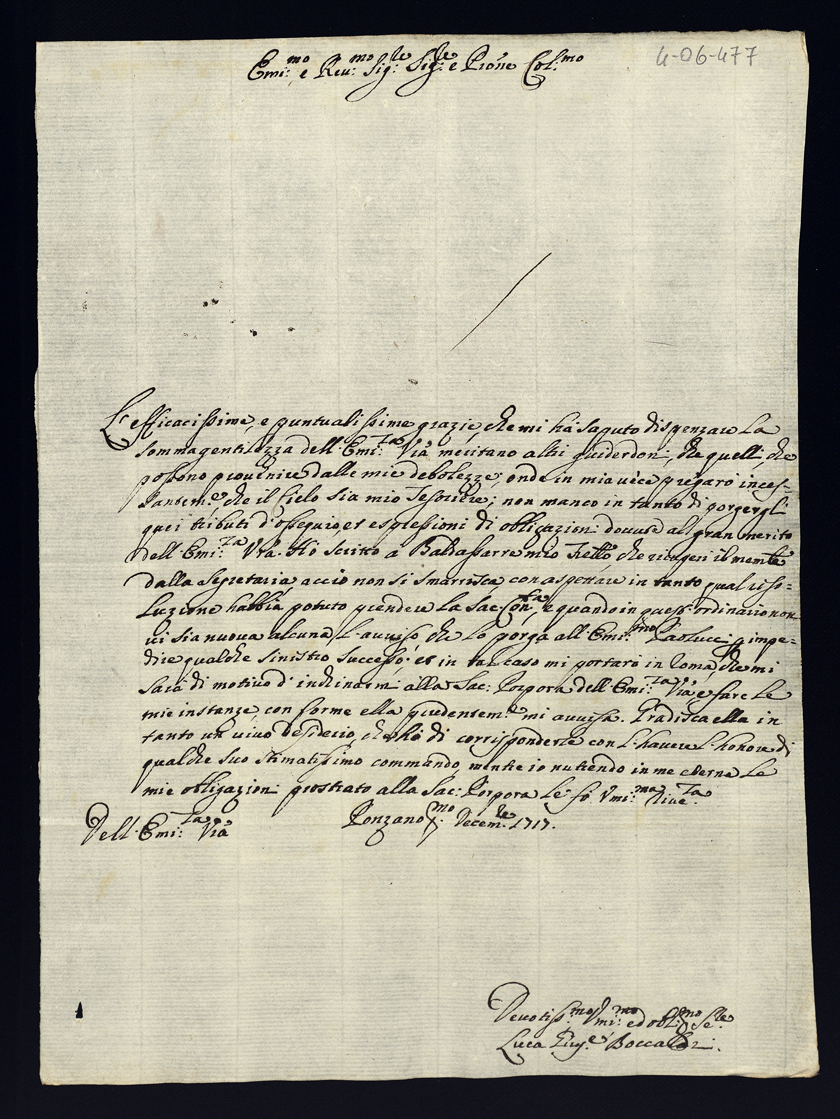 4-06-477
Emi:mo, e Reu:mo Sig:re Sig:re e Prone Col:mo
L'efficacissime, e puntualissime grazie, che mi hà saputo dispenzare la
somma gentilezza dell'Emi:za Vrã meritano altri guiderdoni, che quelli, che
possono prouenire dalle mie debolezze; onde in mia uèce pregarò inces-
santem:e che il Cielo sia mio Tesoriere; non manco in tanto di porgergli
quei tributi d'ossequio, et espressioni di obligazioni douute al gran merito
dell'Emi:za Vrã. Hò scritto à Baldassarre mio frello, che ricuperi il memle
dalla Segretaria acciò non si smarrisca con aspettare in tanto qual riso-
luzione habbia potuto prendere la Sac: Conta, e quando in quest'ordinario non
ui sia nuoua alcuna l'auuiso che lo porga all'Emi:mo Paolucci p impe-
dire qualche sinistro successo; et in tal caso mi portarò in Roma, che mi
sarà di motiuo d'inchinarmi alla Sac: Porpora dell'Emi:za Vrã e fare le
mie instanze conforme ella prudentem:e mi auuisa. Gradisca ella in
tanto un uiuo desiderio, che hò di corrisponderle con l'hauere l'honore di
qualche suo stimatissimo commando, mentre io nutriendo in me eterne le
mie obligazioni prostrato alla Sac: Porpora le fò Vmi:ma riue:za
Dell'Emi:za Vrã Ponzano pmo Decem:re 1717.
Deuotiss:mo Vmi:mo ed obl:mo Sre
Luca Eug:e Boccaldi.